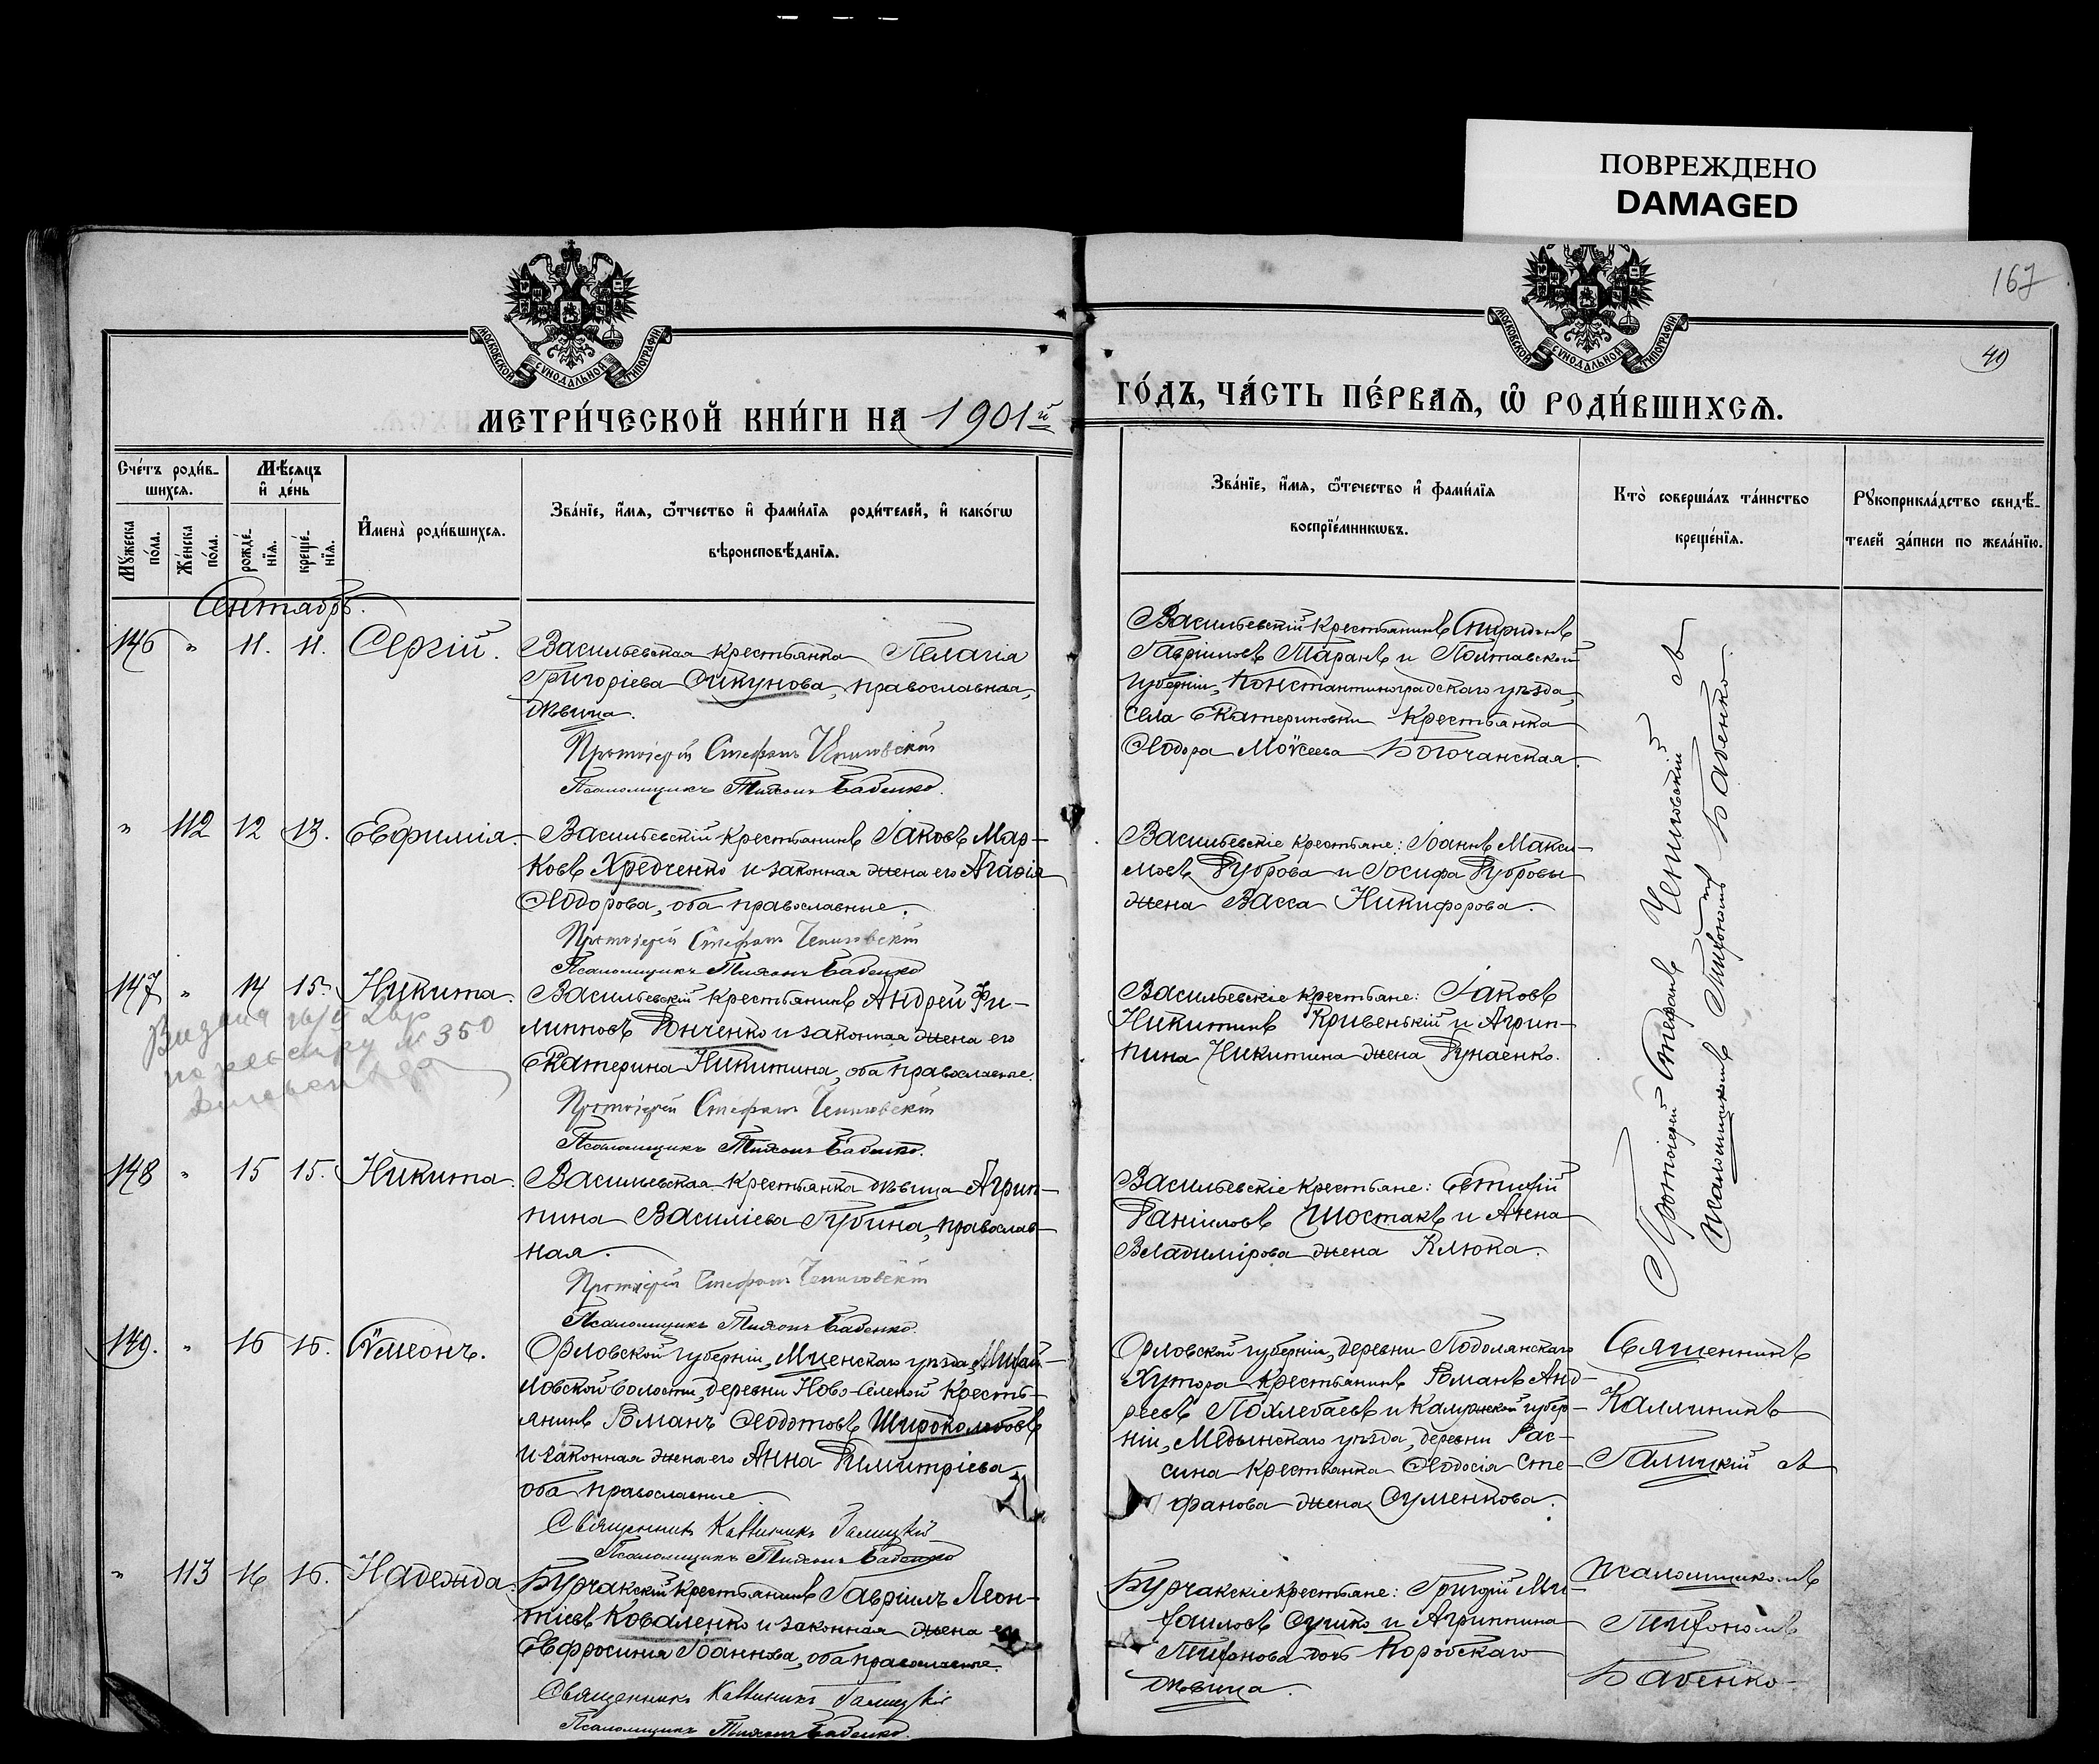 ПОВРЕЖДЕНО
DAMAGED
167
40
МОСКОВСКОЙ СУНОДАЛЬНОЙ ТИПОГРАФІИ
МОСКОВСКОЙ СУНОДАЛЬНОЙ ТИПОГРАФІИ
МЕТРИ́ЧЕСКОЙ КНИ́ГИ НА 1901й
ГО́ДЪ, ЧА́СТЬ ПЕ́РВАѦ, Ѡ РОДИ́ВШИХСѦ.
Сче́тъ роди́в-
шихсѧ.
Мѣ́сѧцъ
и҆ де́нь
Мꙋ́жеска по́ла.
Же́нска по́ла.
рожде́-
нїѧ.
креще́-
нїѧ.
И҆мена̀ роди́вшихсѧ.
Зва́нїе, и҆́мѧ, ѻ҆́тчество и҆ фами́лїѧ роди́телей, и҆ како́гѡ
вѣроисповѣ́данїѧ.
Зва́нїе, и҆́мѧ, ѻ҆те́чество и҆ фами́лїѧ
воспрїе́мникѡвъ.
Кто̀ соверша́лъ та́инство
креще́нїѧ.
Рꙋкоприкла́дство свидѣ́-
телей за́писи по жела́нїю.
Сентябрь.
146 " 11. 11. Сергій.
Васильевская крестьянка Пелагія
Григоріева Сикунова, православная,
дѣвица.
Протоіерей Стефанъ
Псаломщикъ Тихонъ Бабенко.
Васильевскій крестьянинъ Спиридонъ
Гавріиловъ Таранъ и Полтавской
губерніи, Константиноградскаго уѣзда,
села Екатериновки крестьянка
Ѳеодора Моѵсеева Богочанская.
" 112 12 13. Евфимія.
Васильевскій крестьянинъ Іаковъ Мар-
ковъ Хредченко и законная жена его Агаѳія
Ѳеодорова, оба православные.
Протоіерей Стефанъ
Псаломщикъ Тихонъ Бабенко
Васильевскіе крестьяне: Іоаннъ Макси-
мовъ Дуброва и Іосифа Дубровы
жена Васса Никифорова.
147 " 14 15. Никита.
по реестру № 350
Васильевскій крестьянинъ Андрей Фи-
липповъ Донченко и законная жена его
Екатерина Никитина, оба православные.
Протоіерей Стефанъ
Псаломщикъ Тихонъ Бабенко.
Васильевскіе крестьяне: Іаковъ
Никитинъ Кривенькій и Агрип-
пина Никитина жена Дунаенко.
148 " 15 15. Никита.
Васильевская крестьянка дѣвица Агрип-
пина Василіева Губина, православ-
ная.
Протоіерей Стефанъ
Псаломщикъ Тихонъ Бабенко.
Васильевскіе крестьяне: Евтихій
Даніиловъ Шостакъ и Анна
Владимірова жена Клюка.
Протоіерей Стефанъ съ
псаломщикомъ Тихономъ Бабенко.
149. " 16 16. Сѵмеонъ.
Орловской губерніи, Мценскаго уѣзда, Михай-
ловской волости, деревни Ново-Селеной кресть-
янинъ Романъ Ѳеодотовъ Широколобовъ
и законная жена его Анна Димитріева
оба православные
Священникъ Каллиникъ Галицкій
Псаломщикъ Тихонъ Бабенко
Орловской губерніи, деревни Подолянскаго
Хутора крестьянинъ Романъ Анд-
реевъ Похлебаевъ и Калужской губер-
ніи, Медынскаго уѣзда, деревни Рас-
сина крестьянка Ѳеодосія Сте-
фанова жена Суменкова.
Священникъ
Каллиникъ
Галицкій съ
" 113 16 16. Надежда.
Бурчакскій крестьянинъ Гавріилъ Леон-
тіевъ Коваленко и законная жена его
Евфросинія Іоаннова, оба православные.
Священникъ Каллиникъ Галицкій
Псаломщикъ Тихонъ Бабенко.
Бурчакскіе крестьяне: Григорій Ми-
хаиловъ Сушко и Агриппина
Тихонова дочь Коробскаго
дѣвица.
псаломщикомъ
Тихономъ
Бабенко